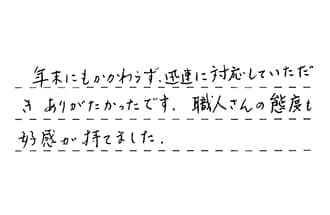 年末にもかかわらず、迅速に対応していただ
き ありがたかったです. 職人さんの態度も
好感が持てました.